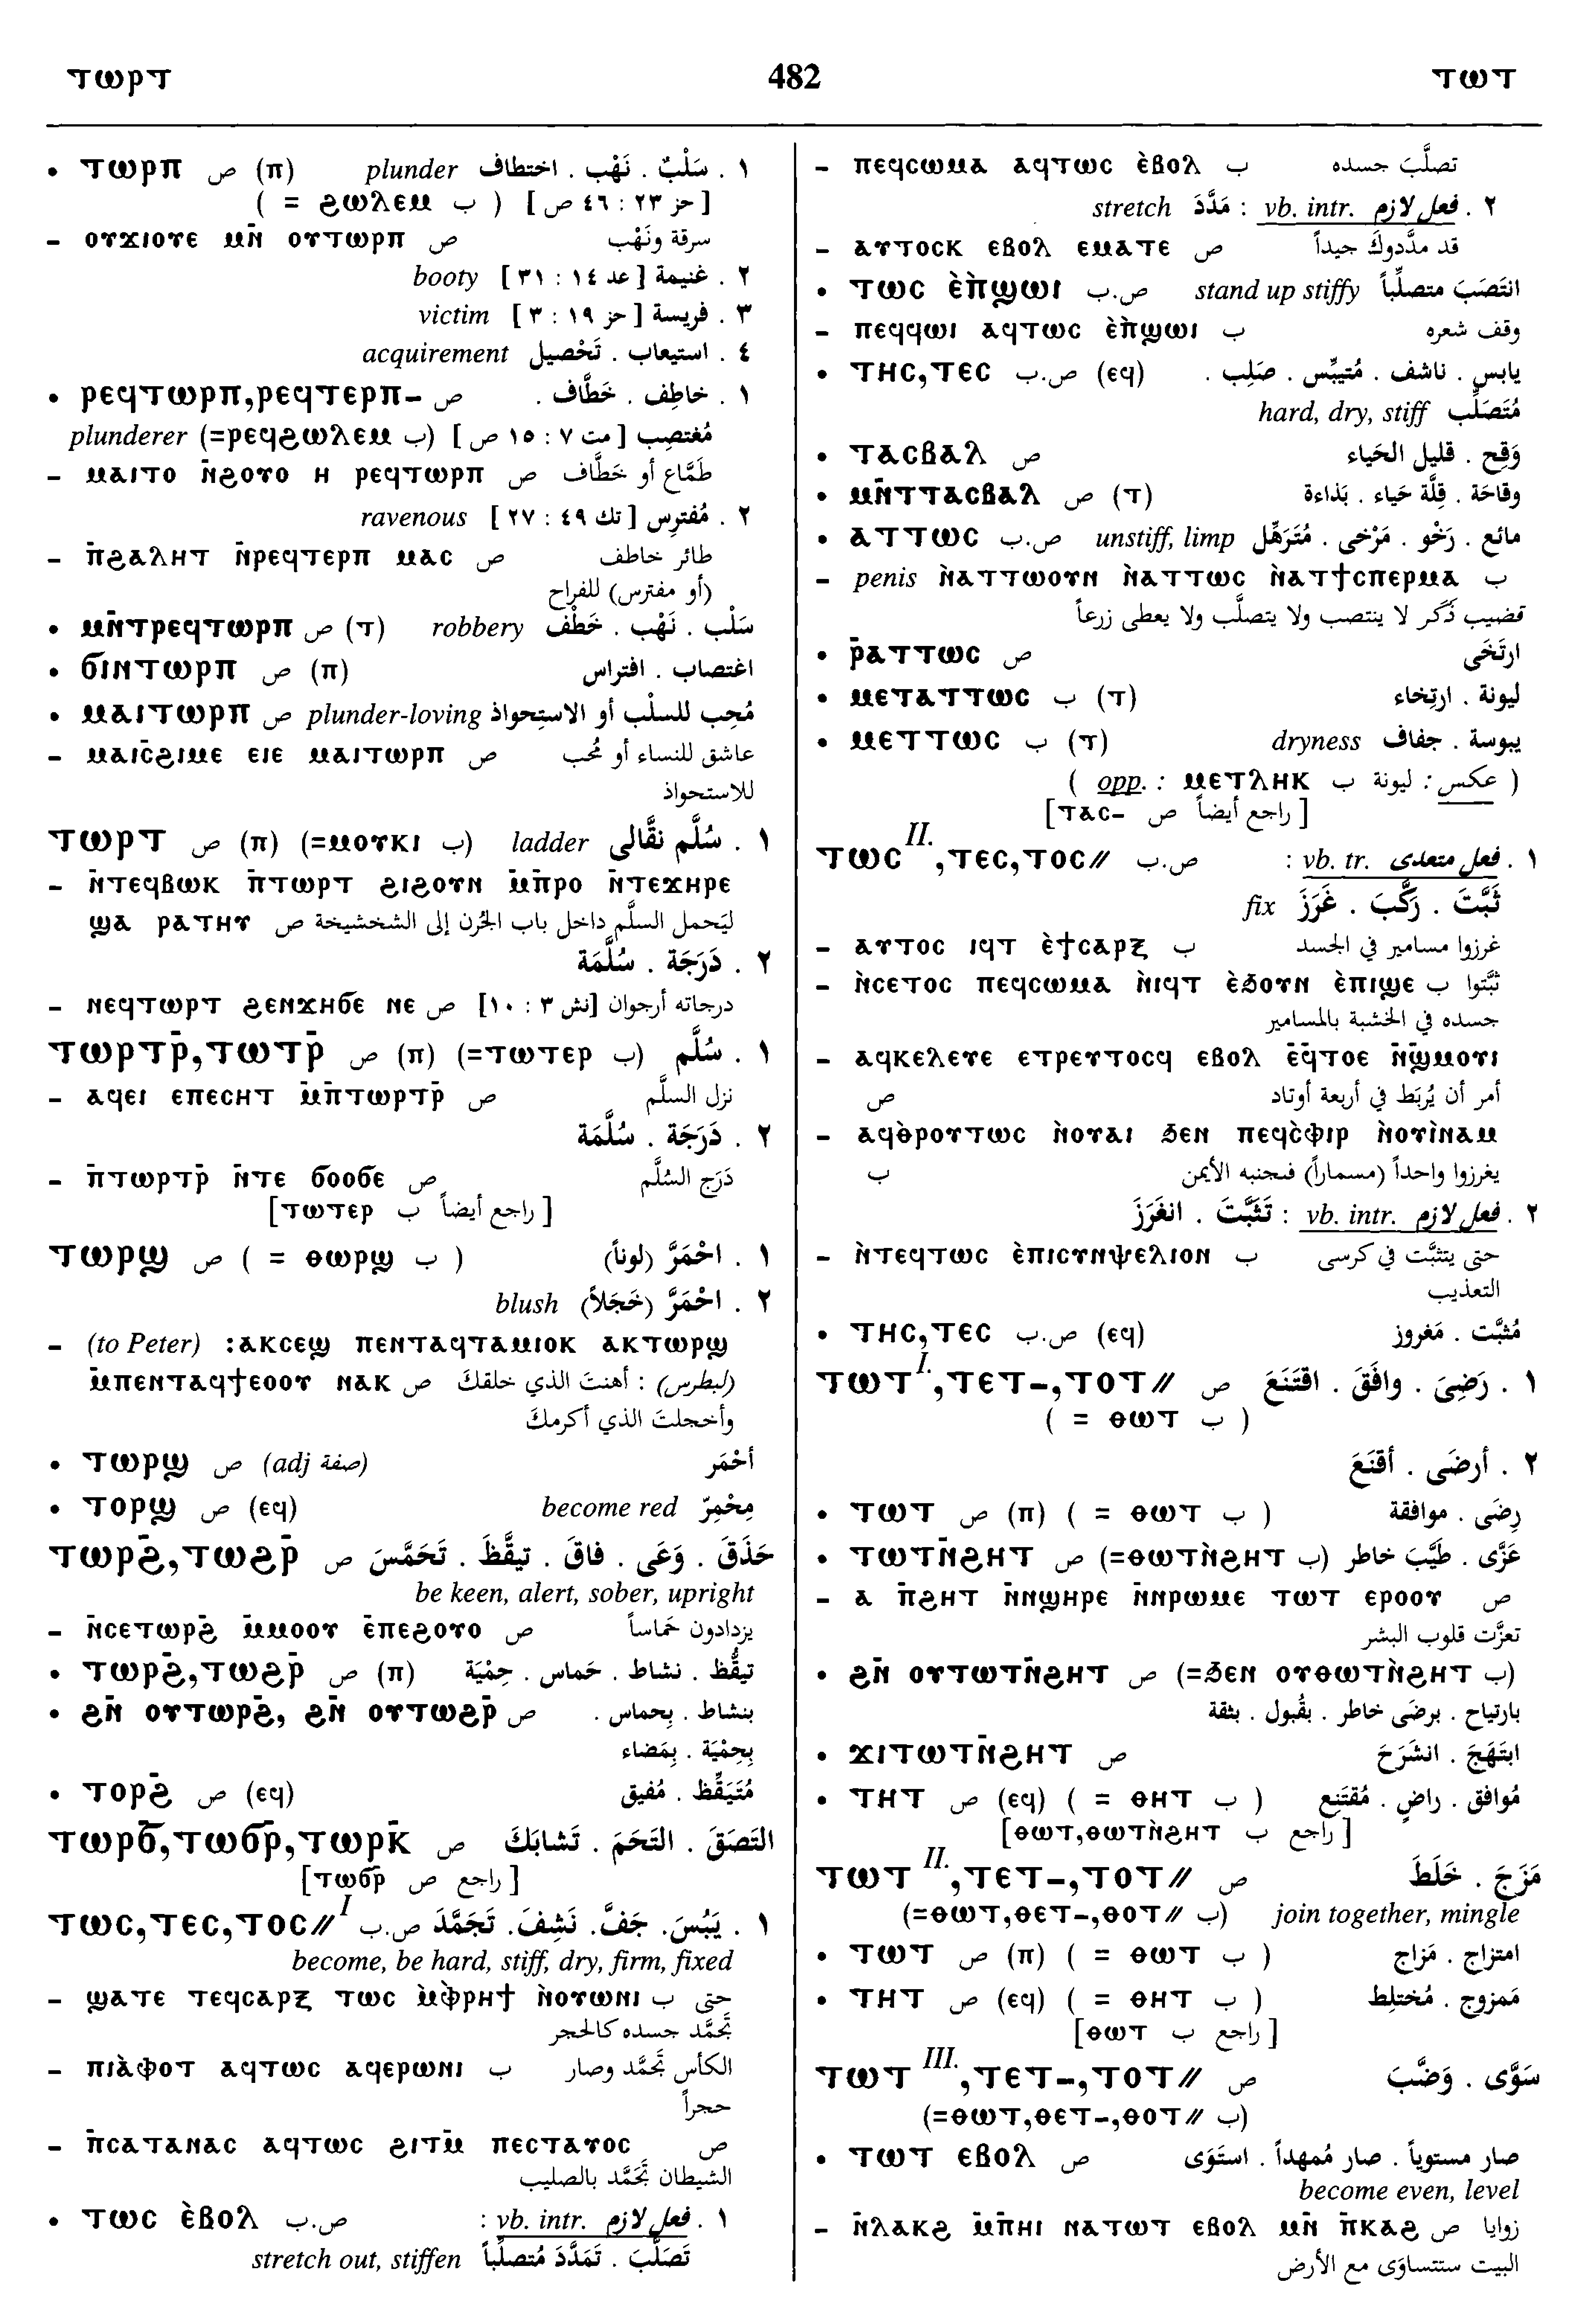 ⲧⲱⲣⲧ 482 ⲧⲱⲧ
• ⲧⲱⲣⲡ ص (ⲡ) plunder ١ . سَلْبٌ . نَهْب . اختطاف
( = ϩⲱⲗⲉⲙ ب ) [ حز ٢٣ : ٤٦ ص ]
– ⲟⲩϫⲓⲟⲩⲉ ⲙⲛ̄ ⲟⲩⲧⲱⲣⲡ ص سرقة ونَهْب
booty ٢ . غنيمة [ عد ١٤ : ٣١ ]
victim ٣ . فريسة [ حز ١٩ : ٣ ]
acquirement ٤ . استيعاب . تَحْصيل
• ⲣⲉϥⲧⲱⲣⲡ,ⲣⲉϥⲧⲉⲣⲡ– ص ١ . خاطِف . خَطَّاف .
plunderer (=ⲣⲉϥϩⲱⲗⲉⲙ ب) مُغتصِب [ مت ٧ : ١٥ ص ]
– ⲙⲁⲓⲧⲟ ⲛ̄ϩⲟⲩⲟ ⲏ ⲣⲉϥⲧⲱⲣⲡ ص طَمَّاع أو خَطَّاف
ravenous ٢ . مُفترِس [ تك ٤٩ : ٢٧ ]
– ⲡ̄ϩⲁⲗⲏⲧ ⲛ̄ⲣⲉϥⲧⲉⲣⲡ ⲙⲁⲥ ص طائر خاطف
(أو مفترس) للفراخ
• ⲙⲛ̄ⲧⲣⲉϥⲧⲱⲣⲡ ص (ⲧ) robbery سَلْب . نَهْب . خَطْف
• ϭⲓⲛⲧⲱⲣⲡ ص (ⲡ) اغتصاب . افتراس
• ⲙⲁⲓⲧⲱⲣⲡ ص plunder-loving مُحِب للسلْب أو الاستِحواذ
– ⲙⲁⲓⲥ̄ϩⲓⲙⲉ ⲉⲓⲉ ⲙⲁⲓⲧⲱⲣⲡ ص عاشق للنساء أو مُحب
للاستحواذ
ⲧⲱⲣⲧ ص (ⲡ) (=ⲙⲟⲩⲕⲓ ب) ladder ١ . سُلَّم نقَّالى
– ⲛ̄ⲧⲉϥⲃⲱⲕ ⲡ̄ⲧⲱⲣⲧ ϩⲓϩⲟⲩⲛ ⲙ̄ⲡⲣⲟ ⲛ̄ⲧⲉϫⲏⲣⲉ
ϣⲁ ⲣⲁⲧⲏⲩ ص ليَحمل السلَّم داخل باب الجُرن إلى الشخشيخة
٢ . دَرَجَة . سُلَّمَة
– ⲛⲉϥⲧⲱⲣⲧ ϩⲉⲛϫⲏϭⲉ ⲛⲉ ص درجاته أرجوان [نش ٣ : ١٠]
ⲧⲱⲣⲧⲣ̄,ⲧⲱⲧⲣ̄ ص (ⲡ) (=ⲧⲱⲧⲉⲣ ب) ١ . سُلَّم
– ⲁϥⲉⲓ ⲉⲡⲉⲥⲏⲧ ⲙ̄ⲡ̄ⲧⲱⲣⲧⲣ̄ ص نزل السلَّم
٢ . دَرَجَة . سُلَّمَة
– ⲡ̄ⲧⲱⲣⲧⲣ̄ ⲛ̄ⲧⲉ ϭⲟⲟϭⲉ ص دَرَج السُلَّم
[ⲧⲱⲧⲉⲣ ب راجع أيضاً ]
ⲧⲱⲣϣ ص ( = ⲑⲱⲣϣ ب ) ١ . احْمَرَّ (لوناً)
blush ٢ . احْمَرَّ (خَجَلاً)
– (to Peter) :ⲁⲕⲥⲉϣ ⲡⲉⲛⲧⲁϥⲧⲁⲙⲓⲟⲕ ⲁⲕⲧⲱⲣϣ
ⲙ̄ⲡⲉⲛⲧⲁϥϯⲉⲟⲟⲩ ⲛⲁⲕ ص (لبطرس) : أهنتَ الذي خلقكَ
وأخجلتَ الذي أكرمكَ
• ⲧⲱⲣϣ ص (adj صفة) أحْمَر
• ⲧⲟⲣϣ ص (ⲉϥ) become red مِحْمِرّ
ⲧⲱⲣϩ̄,ⲧⲱϩⲣ̄ ص حَذَقَ . وَعَى . فاقَ . تيقَّظَ . تَحَمَّسَ
be keen, alert, sober, upright
– ⲛ̄ⲥⲉⲧⲱⲣϩ̄ ⲙ̄ⲙⲟⲟⲩ ⲉ̄ⲡⲉϩⲟⲩⲟ ص يزدادون حَماساً
• ⲧⲱⲣϩ̄,ⲧⲱϩⲣ̄ ص (ⲡ) تيقُّظ . نشاط . حَماس . حِمْيَة
• ϩⲛ̄ ⲟⲩⲧⲱⲣϩ̄, ϩⲛ̄ ⲟⲩⲧⲱϩⲣ̄ ص بنشاط . بِحماس .
بِحِمْيَة . بِمَضاء
• ⲧⲟⲣϩ̄ ص (ⲉϥ) مُتَيَقِّظ . مُفيق
ⲧⲱⲣϭ̄,ⲧⲱϭⲣ̄,ⲧⲱⲣⲕ̄ ص التَصَقَ . التَحَمَ . تَشابَكَ
[ⲧⲱϭⲣ̄ ص راجع ]
ⲧⲱⲥ,ⲧⲉⲥ,ⲧⲟⲥ// I ص.ب ١ . يَبُسَ. جَفَّ. نَشِفَ. تَجَمَّدَ
become, be hard, stiff, dry, firm, fixed
– ϣⲁⲧⲉ ⲧⲉϥⲥⲁⲣⲝ ⲧⲱⲥ ⲙ̀ⲫⲣⲏϯ ⲛ̀ⲟⲩⲱⲛⲓ ب حتى
تَجمَّد جسده كالحجر
– ⲡⲓⲁ̀ⲫⲟⲧ ⲁϥⲧⲱⲥ ⲁϥⲉⲣⲱⲛⲓ ب الكأس تَجمَّد وصار
حجراً
– ⲡ̄ⲥⲁⲧⲁⲛⲁⲥ ⲁϥⲧⲱⲥ ϩⲓⲧⲙ̄ ⲡⲉⲥⲧⲁⲩⲟⲥ ص
الشيطان تَجَمَّد بالصليب
• ⲧⲱⲥ ⲉ̀ⲃⲟⲗ ص.ب ١ . فعل لازم vb. intr. :
stretch out, stiffen تَصَلَّبَ . تَمَدَّدَ مُتصلِّباً
– ⲡⲉϥⲥⲱⲙⲁ ⲁϥⲧⲱⲥ ⲉ̀ⲃⲟⲗ ب تصلَّبَ جسده
stretch ٢ . فعل لازم vb. intr. : مَدَّدَ
– ⲁⲩⲧⲟⲥⲕ ⲉⲃⲟⲗ ⲉⲙⲁⲧⲉ ص قد مدَّدوكَ جيداً
• ⲧⲱⲥ ⲉ̀ⲡ̀ϣⲱⲓ ص.ب stand up stiffy انتَصَبَ متصلِّباً
– ⲡⲉϥϥⲱⲓ ⲁϥⲧⲱⲥ ⲉ̀ⲡ̀ϣⲱⲓ ب وقف شعره
• ⲧⲏⲥ,ⲧⲉⲥ ص.ب (ⲉϥ) يابس . ناشف . مُتيبِّس . صَلِب .
hard, dry, stiff مُتَصلِّب
• ⲧⲁⲥⲃⲁⲗ ص وَقِح . قليل الحَياء
• ⲙⲛ̄ⲧⲧⲁⲥⲃⲁⲗ ص (ⲧ) وقاحَة . قِلَّة حَياء . بَذاءة
• ⲁⲧⲧⲱⲥ ص.ب unstiff, limp مائع . رَخْو . مَرْخى . مُتَرَهِّل
– penis ⲛ̀ⲁⲧⲧⲱⲟⲩⲛ ⲛ̀ⲁⲧⲧⲱⲥ ⲛ̀ⲁⲧϯⲥⲡⲉⲣⲙⲁ ب
قضيب ذَكَر لا ينتصب ولا يتصلَّب ولا يعطى زرعاً
• ⲣ̄ⲁⲧⲧⲱⲥ ص ارتَخَى
• ⲙⲉⲧⲁⲧⲧⲱⲥ ب (ⲧ) ليونة . ارتِخاء
• ⲙⲉⲧⲧⲱⲥ ب (ⲧ) dryness يبوسة . جفاف
( opp. : ⲙⲉⲧⲗⲏⲕ ب عكس : ليونة )
[ⲧⲁⲥ– ص راجع أيضاً ]
ⲧⲱⲥ II.,ⲧⲉⲥ,ⲧⲟⲥ// ص.ب ١ . فعل متعدى vb. tr. :
fix ثَبَّتَ . رَكَّبَ . غَرَزَ
– ⲁⲩⲧⲟⲥ ⲓϥⲧ ⲉ̀ϯⲥⲁⲣⲝ ب غرزوا مسامير في الجسد
– ⲛ̀ⲥⲉⲧⲟⲥ ⲡⲉϥⲥⲱⲙⲁ ⲛ̀ⲓϥⲧ ⲉ̀ϧⲟⲩⲛ ⲉ̀ⲡⲓϣⲉ ب ثبَّتوا
جسده في الخشبة بالمسامير
– ⲁϥⲕⲉⲗⲉⲩⲉ ⲉⲧⲣⲉⲩⲧⲟⲥϥ ⲉⲃⲟⲗ ⲉ̄ϥ̄ⲧⲟⲉ ⲛ̄ϣ̄ⲙⲟⲩⲓ
ص أمر أن يُربَط في أربعة أوتاد
– ⲁϥⲑⲣⲟⲩⲧⲱⲥ ⲛ̀ⲟⲩⲁⲓ ϧⲉⲛ ⲡⲉϥⲥ̀ⲫⲓⲣ ⲛ̀ⲟⲩⲓ̀ⲛⲁⲙ
ب يغرزوا واحداً (مسماراً) فىجنبه الأيمن
٢ . فعل لازم vb. intr. : تَثَبَّتَ . انغَرَزَ
– ⲛ̀ⲧⲉϥⲧⲱⲥ ⲉ̀ⲡⲓⲥⲩⲛⲯⲉⲗⲓⲟⲛ ب حتى يتثبَّت في كرسى
التعذيب
• ⲧⲏⲥ,ⲧⲉⲥ ص.ب (ⲉϥ) مُثبَّت . مَغروز
ⲧⲱⲧ I.,ⲧⲉⲧ–,ⲧⲟⲧ// ص ١ . رَضِىَ . وافَقَ . اقتَنَعَ
( = ⲑⲱⲧ ب )
٢ . أرضَى . أقنَعَ
• ⲧⲱⲧ ص (ⲡ) ( = ⲑⲱⲧ ب ) رِضَى . موافقة
• ⲧⲱⲧⲛ̄ϩⲏⲧ ص (=ⲑⲱⲧⲛ̀ϩⲏⲧ ب) عَزَّى . طيَّبَ خاطر
– ⲁ ⲡ̄ϩⲏⲧ ⲛ̄ⲛϣⲏⲣⲉ ⲛ̄ⲛⲣⲱⲙⲉ ⲧⲱⲧ ⲉⲣⲟⲟⲩ ص
تعزَّت قلوب البشر
• ϩⲛ̄ ⲟⲩⲧⲱⲧⲛ̄ϩⲏⲧ ص (=ϧⲉⲛ ⲟⲩⲑⲱⲧⲛ̀ϩⲏⲧ ب)
بارتياح . برضَى خاطر . بقُبول . بثقة
• ϫⲓⲧⲱⲧⲛ̄ϩⲏⲧ ص ابتَهَجَ . انشَرَحَ
• ⲧⲏⲧ ص (ⲉϥ) ( = ⲑⲏⲧ ب ) مُوافق . راضٍ . مُقتَنِع
[ⲑⲱⲧ,ⲑⲱⲧⲛ̀ϩⲏⲧ ب راجع ]
ⲧⲱⲧ II.,ⲧⲉⲧ–,ⲧⲟⲧ// ص مَزَجَ . خَلَطَ
(=ⲑⲱⲧ,ⲑⲉⲧ–,ⲑⲟⲧ// ب) join together, mingle
• ⲧⲱⲧ ص (ⲡ) ( = ⲑⲱⲧ ب ) امتزاج . مَزاج
• ⲧⲏⲧ ص (ⲉϥ) ( = ⲑⲏⲧ ب ) مَمزوج . مُختلِط
[ⲑⲱⲧ ب راجع ]
ⲧⲱⲧ III.,ⲧⲉⲧ–,ⲧⲟⲧ// ص سَوَّى . وَضَّبَ
(=ⲑⲱⲧ,ⲑⲉⲧ–,ⲑⲟⲧ// ب)
• ⲧⲱⲧ ⲉⲃⲟⲗ ص صار مستوياً . صار مُمهداً . استَوَى
become even, level
– ⲛ̄ⲗⲁⲕϩ ⲙ̄ⲡⲏⲓ ⲛⲁⲧⲱⲧ ⲉⲃⲟⲗ ⲙⲛ̄ ⲡ̄ⲕⲁϩ ص زوايا
البيت ستتساوَى مع الأرض